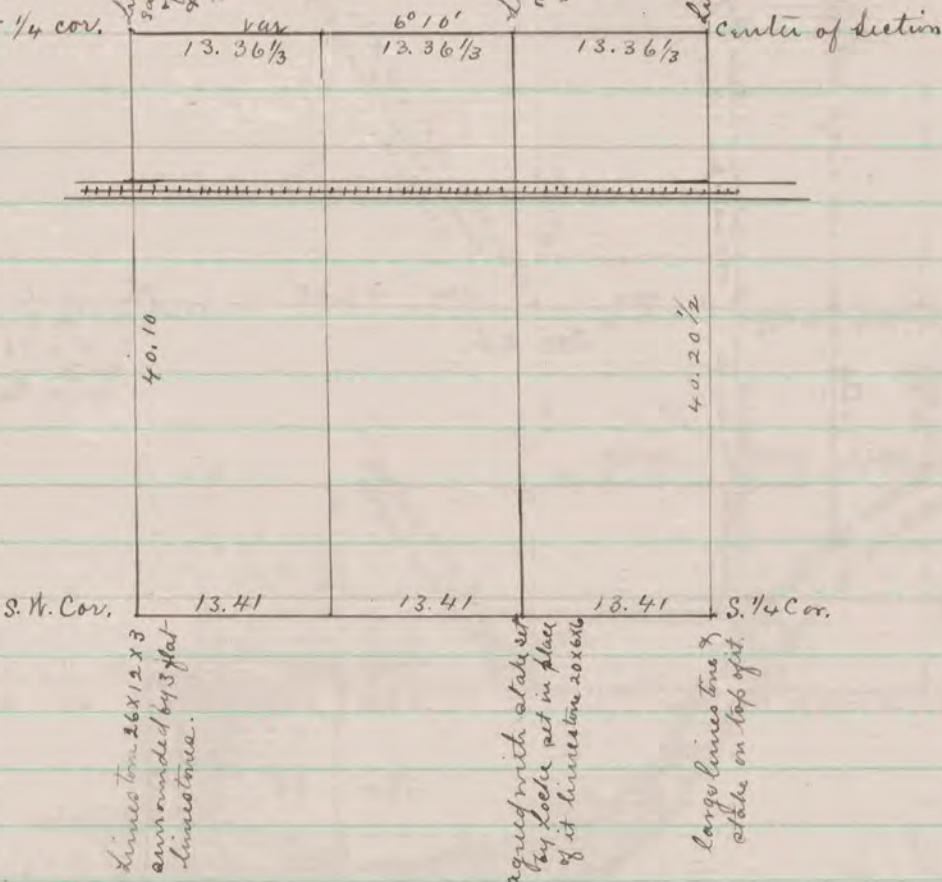 1/4 cor.
var 6° 10'
Center of Section
13.36 1/3 13.36 1/3 13.36 1/3
40.10
40.20 1/2
S.W. Cor. 13.41 13.41 13.41 S. 1/4 Cor.
Limestone 26x12x3
surrounded by 3 flat
limestones.
agreed with stake set
by Locke set in place
of it limestone 20x6x6
large limestone &
stake on top of it.